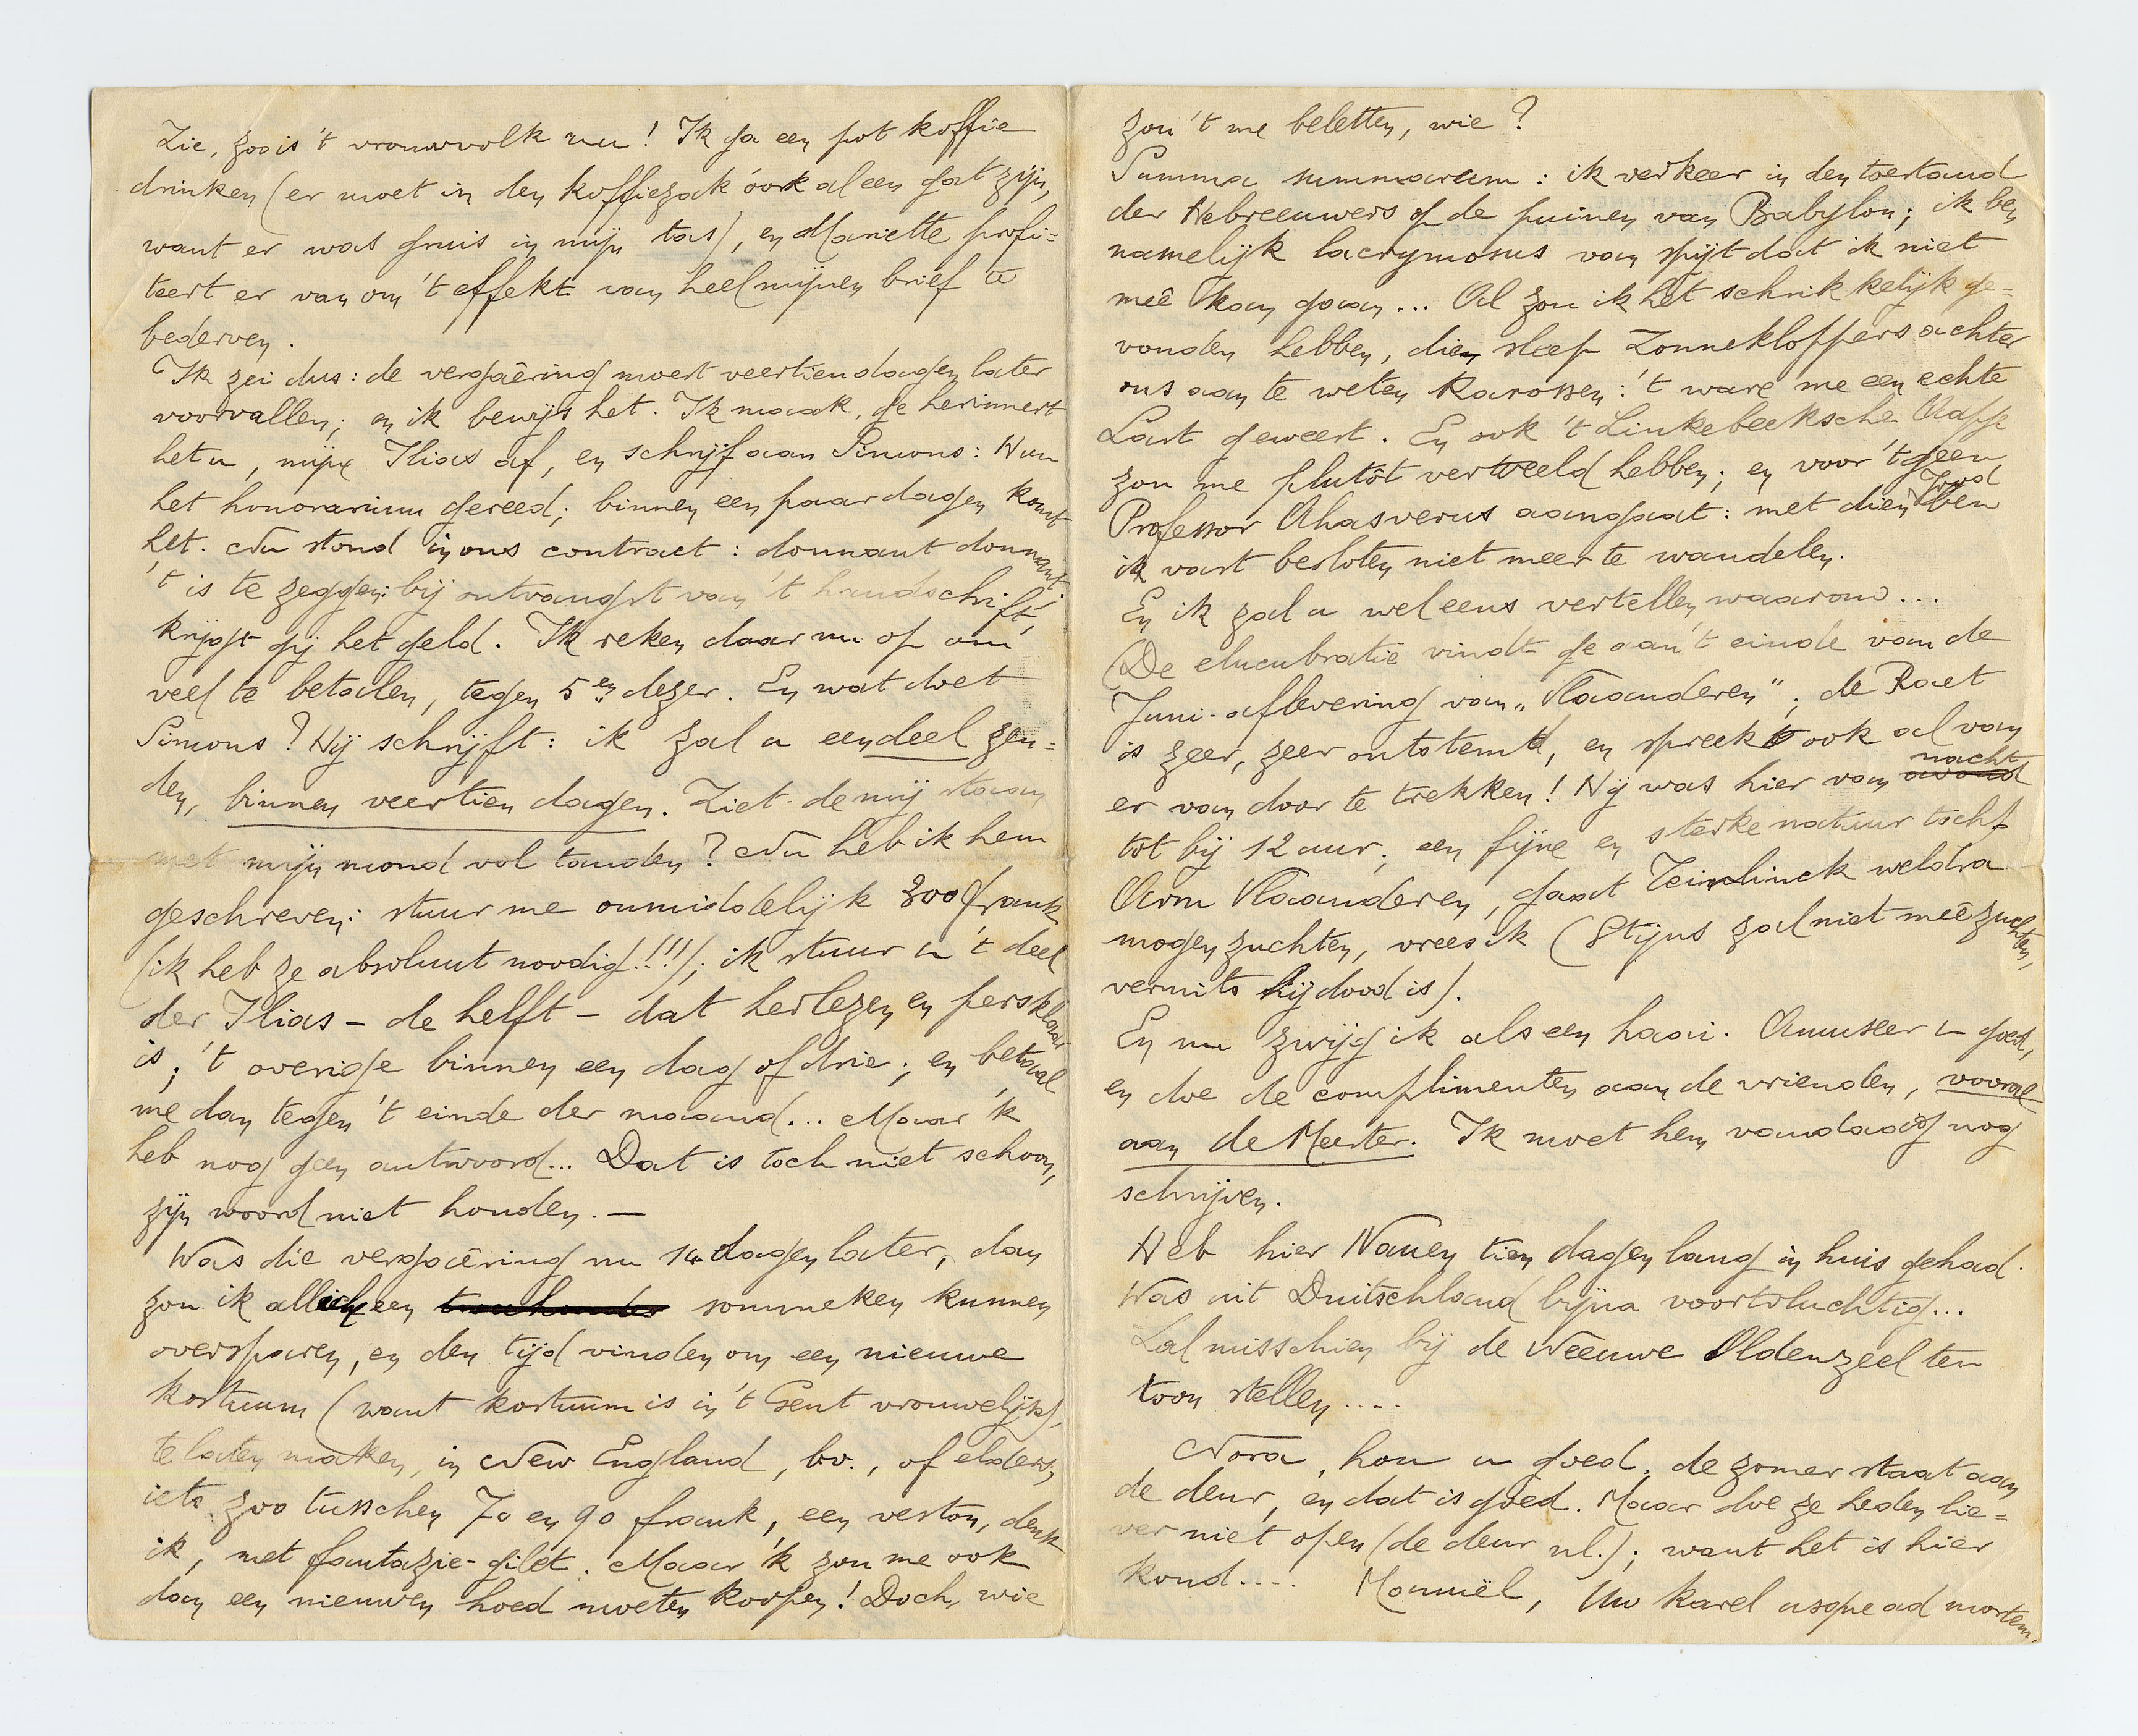 Zie, zoo is 't vrouwvolk nu! Ik ga een pot koffie
drinken (er moet in den koffiezak óók al een gat zijn,
want er was gruis in mijn tas), en Mariette profi=
teert er van om 't effekt van heel mijnen brief te
bederven.
Ik zei dus: de vergaêring moest veertien dagen later
voorvallen; en ik bewijs het. Ik maak, ge herinnert
het u, mijne Ilias af, en schrijf aan Simons: Hun
het honorarium gereed; binnen een paar dagen komt
het. Nu stond in ons contract: donnant donnant;
't is te zeggen: bij ontvangst van 't handschrift,
krijgt gij het geld. Ik reken daar nu op om
veel te betalen, tegen 5en dezer. En wat doet
Simons? Hij schrijft: ik zal u een deel zen=
den, binnen veertien dagen. Ziet-de mij staan
met mijn mond vol tanden? Nu heb ik hem
geschreven: stuur me onmiddelijk 300 frank
(ik heb ze absoluut noodig!!!); ik stuur u 't deel
der Ilias – de helft – dat herlezen en persklaar
is; 't overige binnen een dag of drie; en betaal
me dan tegen 't einde der maand... Maar 'k
heb nog geen antwoord... Dat is toch niet schoon,
zijn woord niet houden. –
Was die vergaêring nu 14 dagen later, dan
zou ik allicht een sommeken kunnen
oversparen, en den tijd vinden om een nieuwe
kostuum (want kostuum is in 't Gent vrouwelijk),
te laten maken, in New England, bv., of elders,
iets zoo tusschen 70 en 90 frank, een veston, denk
ik, met fantazie-gilet. Maar 'k zou me ook
dan een nieuwen hoed moeten koopen! Doch, wie
zou 't me beletten, wie?
Summa summarum: ik verkeer in den toestand
der Hebreeuwers op de puinen van Babylon; ik ben
namelijk lacrymosus van spijt dat ik niet
meê kan gaan... Al zou ik het schrikkelijk ge=
vonden hebben, dien sleep Zonnekloppers achter
ons aan te weten karossen: 't ware me een echte
Last geweest. En ook 't Linkebeeksche Aapje
zou me plutôt verveeld hebben; en voor 't geen
Professor Ahasverus aangaat: met dien Jood ben
ik vast besloten niet meer te wandelen.
En ik zal u wel eens vertellen, waarom...
(De elucubratie vindt ge aan 't einde van de
Juni-aflevering van „Vlaanderen"; de Raet
is zeer, zeer ontstemd, en spreekt ook al van
er van door te trekken! Hij was hier van nacht
tot bij 12 uur; een fijne en sterke natuur tschf
Arm Vlaanderen, gaat Teirlinck weldra
mogen zuchten, vrees ik (Stijns zal niet meê zuchten,
vermits hij dood is).
En nu zwijg ik als een haai. Amuseer u goed,
en doe de complimenten aan de vrienden, vooral
aan de Meester. Ik moet hem vandaag nog
schrijven.
Heb hier Nauen tien dagen lang in huis gehad.
Was uit Duitschland bijna voortvluchtig...
Zal misschien bij de Weeuwe Oldenzeel ten
toon stellen....
Nora, hou u goed, de zomer staat aan
de deur, en dat is goed. Maar doe ze heden lie=
ver niet open (de deur nl.); want het is hier
koud.... Manuël, Uw Karel usque ad mortem.